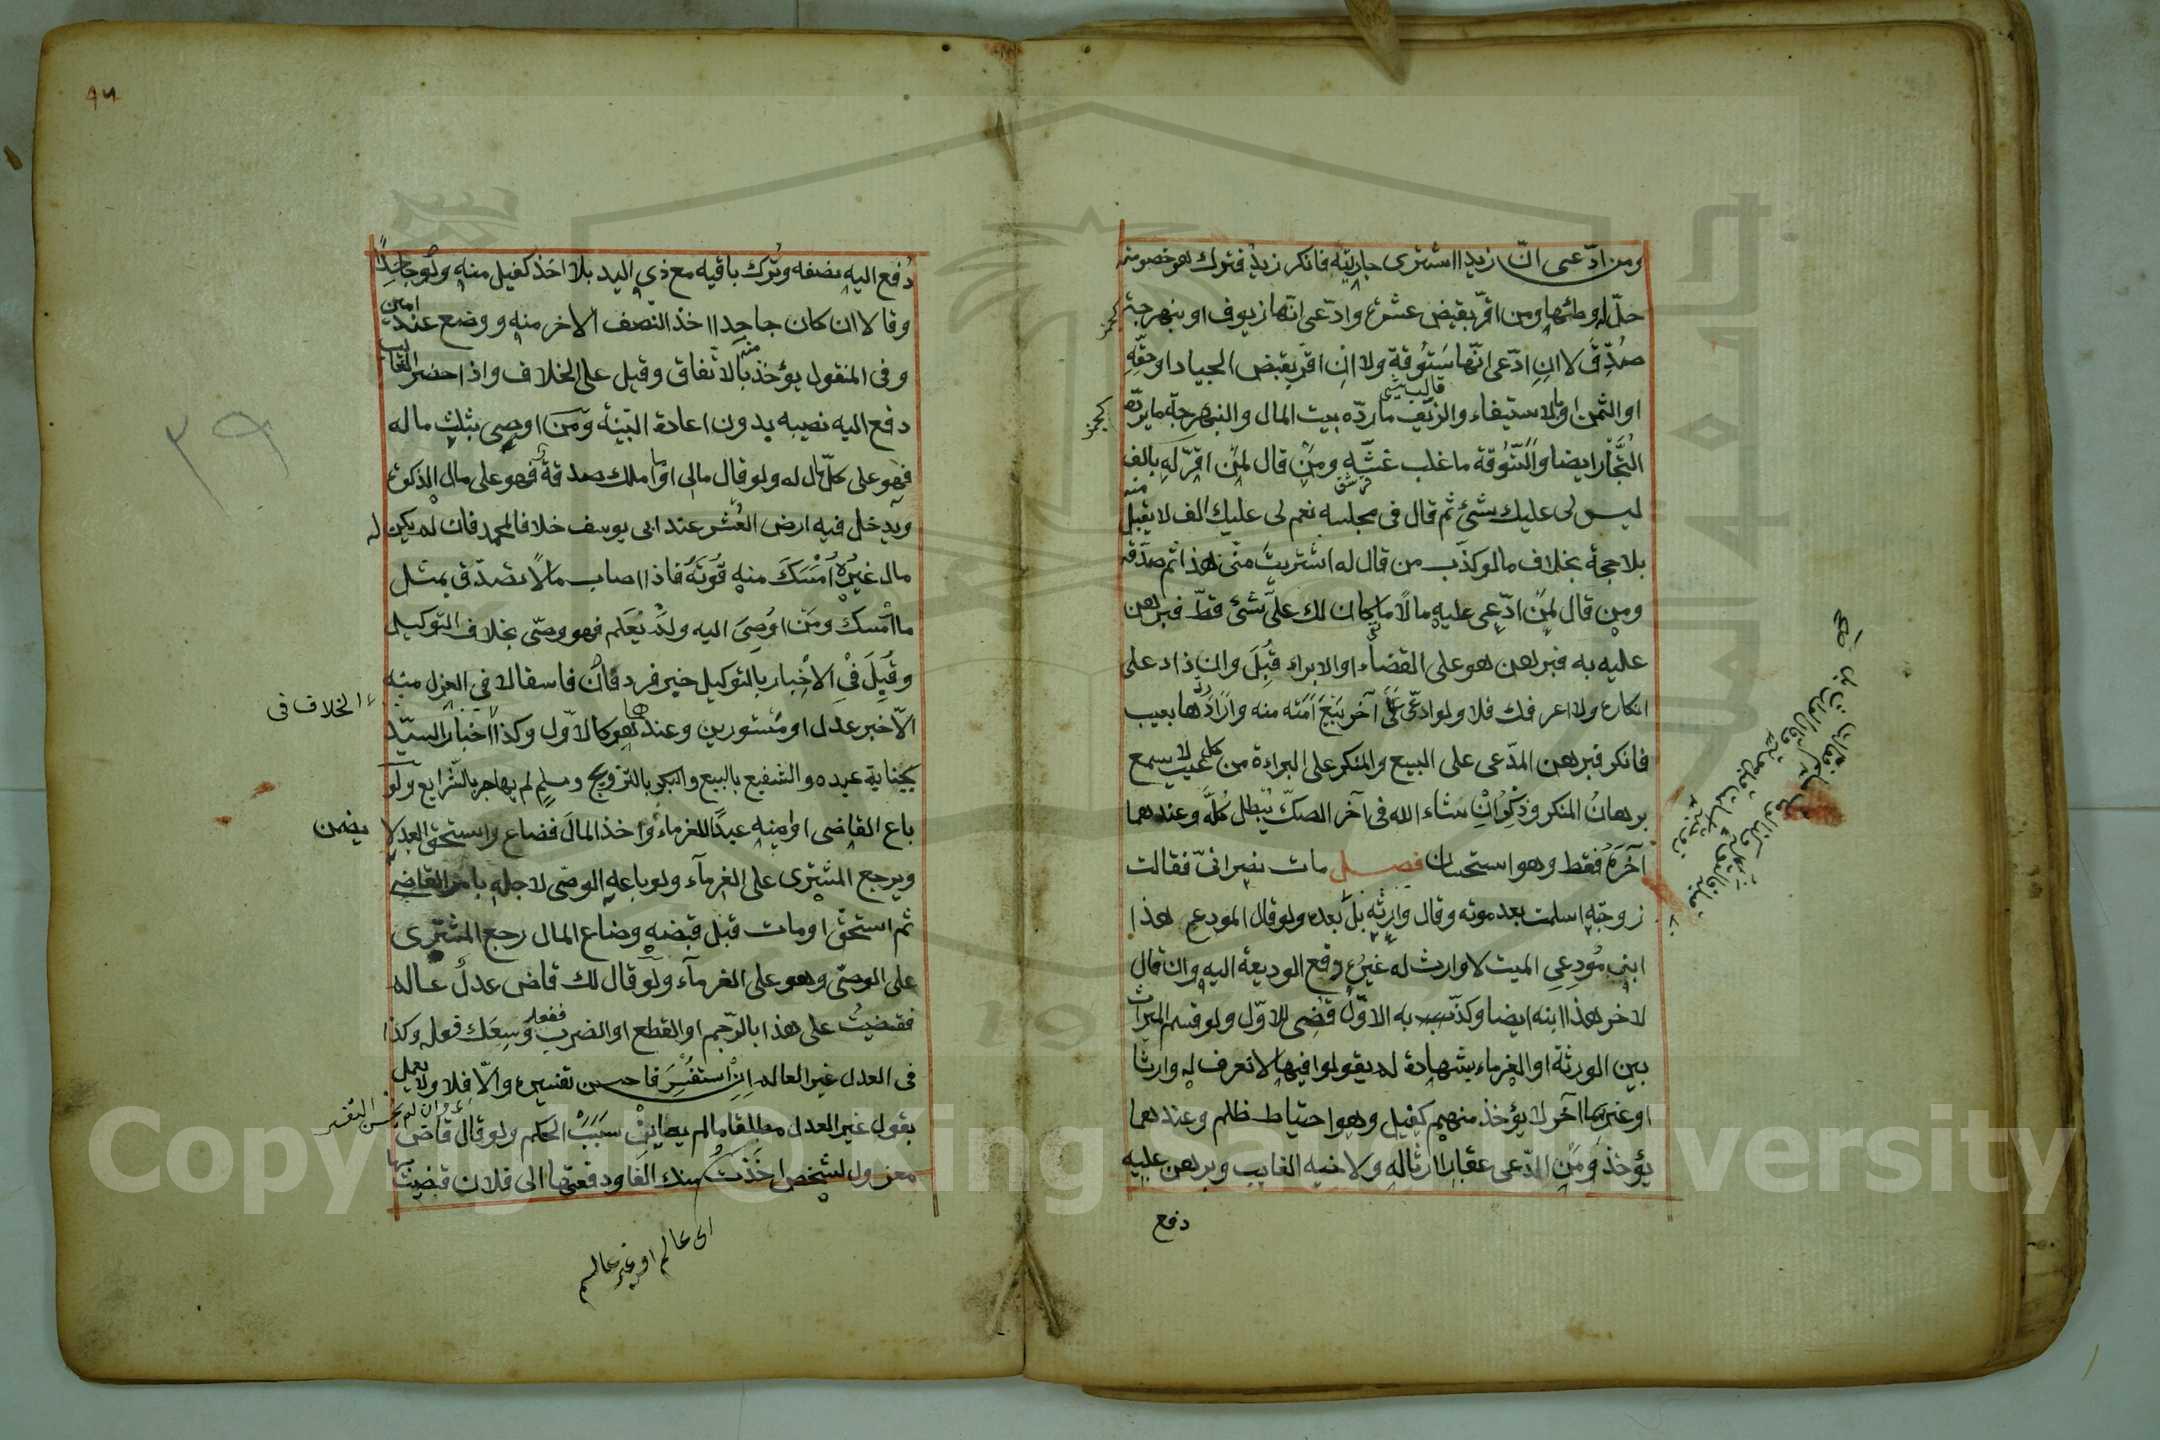 ومن ادّعى انّ زيدا اشترى جاريته فانكر زيد فترك هو خصومته
حلّ له وطئها ومن اقرّ بقبض عشرة وادّعى انّها زيوف او بنهرجة
صُدِّقَ لا انِ ادّعى انّها سَتُوقة ولا انْ اقرّ بقبض الجياد او حقّه
او الثمن او بالاستيفاء والزيف ما ردّه بيت المال والنبهرجة ما يردّه
التُّجّار ايضا والستّوقة ما غلب غشّه ومن قال لمن اقرّ له بالف
ليس لى عليك شئ ثم قال فى مجلسه نعم لى عليك الف لا يقبل منه
بلا حجة بخلاف ما لو كذّب من قال له اشتريتَ منّى هذا ثم صدّقه
ومن قال لمن ادّعى عليه مالًا ما كان لك علىّ شئ قطّ فبرهن
عليه به فبرهن هو على القضاء او الابراء قُبِلَ وان زاد على
انكاره ولا اعرفك فلا ولو ادّعى على آخر بَيْعَ اَمَته منه واراد ردّها بعيب
فانكر فبرهن المدّعى على البيع والمنكر على البراءة من كل عيب لا يسمع
برهانُ المنكر وذكرُ انْ شاء الله فى آخر الصكّ يُبطل كُلَّه وعندهما
آخرَه فقط وهو استحسان فصـــل مات نصرانىّ فقالت
زوجته اسلمت بعد موته وقال وارثه بل بعده ولو قال المودع هذا
ابن مُودِعِى الميت لا وارث له غيره دفع الوديعة اليه وان قال
لآخر هذا ابنه ايضا وكذّب به الاوّل قضى للاوّل ولو قسم الميراث
بين الورثة او الغرماء بشهادة لم يقولوا فيها لا نعرف له وارثا
او غريما آخر لا يؤخذ منهم كفيل وهو احتياط ظلم وعندهما
يؤخذ ومن ادّعى عقارا ارثا له ولاخيه الغايب وبرهن عليه
دفع
٩٥
٣٩
دُفع اليه نصفه وتُرك باقيه مع ذى اليد بلا اخذ كفيل منه ولو جاحدًا
وقالا ان كان جاحدا اخذ النصف الآخر منه ووضع عند امين
وفى المنقول يؤخذ منه بالاتفاق وقيل على الخلاف واذا حضر الغائب
دفع اليه نصيبه بدون اعادة البيّنة ومَن اوصى بثلث ماله
فهو على كلّ مال له ولو قال مالى او ما املك صدقة فهو على مال الزكوة
ويدخل فيه ارض العُشر عند ابى يوسف خلافا لمحمد فان لم يكن له
مال غيرُه اَمْسَكَ منه قُوتَه فاذا اصاب مالًا تصدّق بمثل
ما امسك ومَن اُوصِىَ اليه ولم يُعلَم فهو وصّى بخلاف التوكيل
وقُبِلَ فى الاِخْبار بالتوكيل خبر فرد وان فاسقا لا فى العزل منه
الخلاف فى
الّا خبر عدل او مستورين وعندهما هو كالاوّل وكذا اخبار السيّد
بجناية عبده والشفيع بالبيع والبكر بالتزويج ومسلم لم يهاجر بالشرايع ولو
باع القاضى او امينه عبدًا للغرماء واخذ المالَ فضاع واستحق العبد لا يضمن
ويرجع المشترى على الغرماء ولو باعه الوصّى لاجله بامر القاضى
ثم استحقّ او مات قبل قبضه وضاع المال رجع المشترى
على الوصّى وهو على الغرماء ولو قال لك قاض عدلٌ عالم
قضيتُ على هذا بالرّجم او القطع او الضرب فافعله وَسِعَك فعله وكذا
فى العدل غير العالم اِن استفُسِرَ فاحسن تفسيره والّا فلا ولا يعمل
اى وان لم يحسن التفسير
بقول غير العدل مطلقا ما لم يعاين سَبَبَ الحكم ولو قال قاضى
معزول لشخص اخذتُ منك الفا ودفعتها الى فلان قضيتُ بها
اى عالم او غير عالم
Copyright © King Saud University